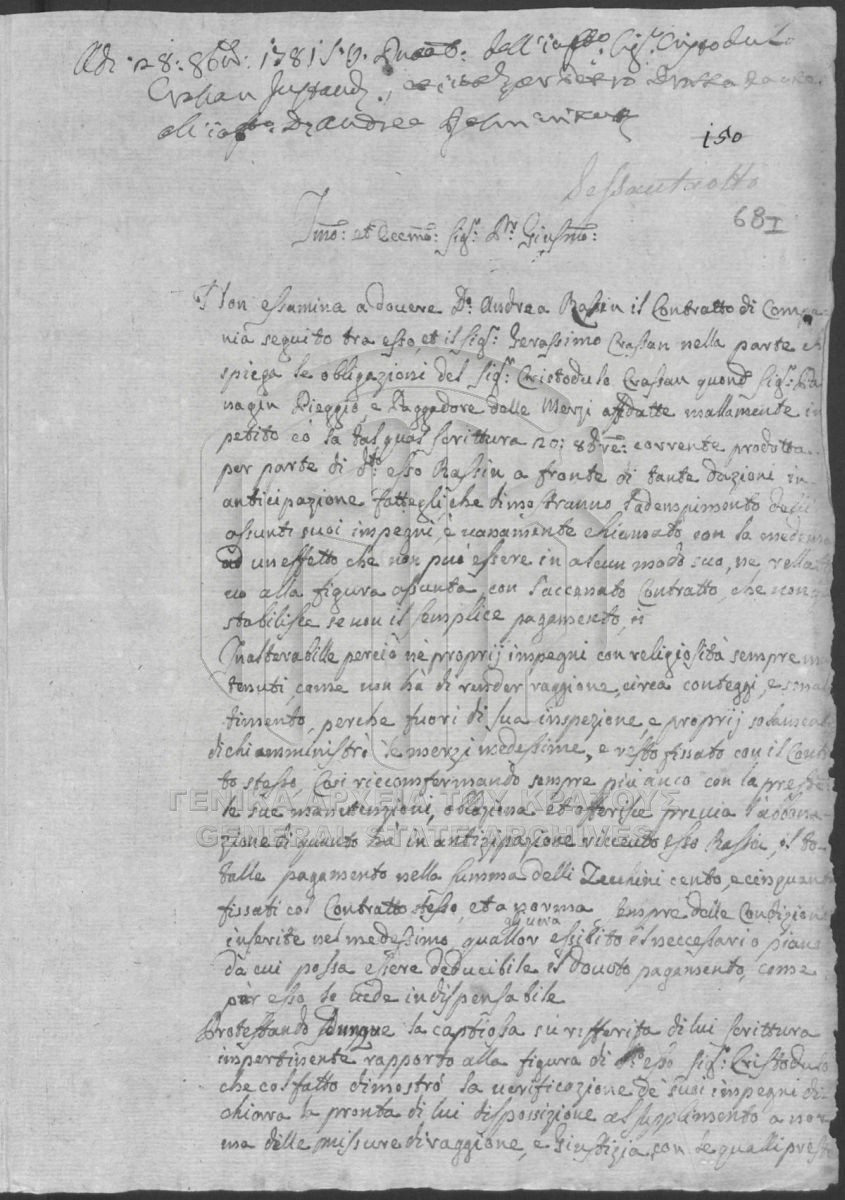 Adi: 28: 8bre: 1781 S.V. dell'
Crassan
all' D: Andrea
150
Sessantaotto
68
Illmo: et Eccmo: Sigr: Giusmo:
Non essamina a dovere Dn: Andrea Rassin il Contratto di Compa-
nia seguito tra esso, et il Sigr: Gerassimo Crassan nella parte ch
spiega le obligazioni del Sigr: Cristodulo Crassan quond: Sigr: Pa
nagin Pieggio, e Paggadore delle Merzi affidatte mallamente in
petito cò la tal qual scrittura 20: 8bre: corrente prodotta
per parte di dto esso Rassin a fronte di tante dazioni in
anticipazione fattegli, che dimostranno l'adempimento delli
assunti suoi impegni, è vanamente chiamato con la medema
ad un effetto che non può essere in alcun modo suo, ne rellat
vo alla figura assunta con l'accenato Contratto, che non
stabilisce se non il semplice pagamento,
Inalterabille perciò ne proprij impegni con religiosità sempre m
tenuti, come non hà di render raggione, circa conteggi, e
timento, perche fuori di sua inspezione, e proprij solament
di chi amministrò le merzi medessime, e resto fissato con il Contr
to stesso, Così riccomfermando sempre più anco con la prest
le sue manutenzioni, et offerisce previa l'abbona-
zione di quanto hà in antizipazione riccevuto esso Rassin, il to-
talle pagamento nella summa delli Zecchini cento, e cinquant
fissati col Contratto stesso, et a norma sempre delle Condizion
inserite nel medessimo, quallor essibito il neccessario piano
da cui possa essere deducibile il dovuto pagamento, come
pur esso lo crede indispensabile
Protestando dunque la captiosa su rifferita di lui scrittura
impertinente rapporto alla figura di esso Sigr: Cristodulo
che col fatto dimostrò la verificazione de suoi impegni di-
chiarra la pronta di lui dispossizione al supplimento a nor
ma delle missure di raggione, e Giustizia con le qualli prest
ΓΕΝΙΚΑ ΑΡΧΕΙΑ ΤΟΥ ΚΡΑΤΟΥΣ
GENERAL STATE ARCHIVES